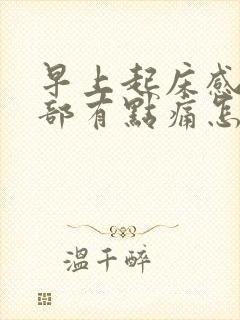 早上起床感
部有點痛怎
溫千醉